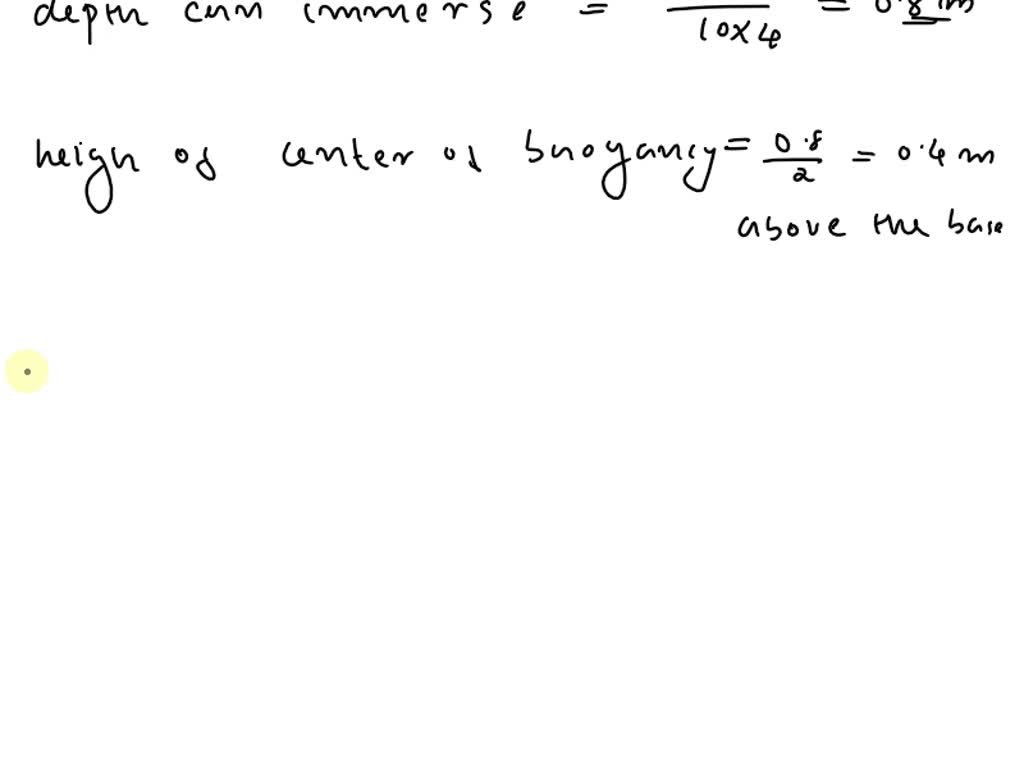 depth can immerse = / 10×4 = 0.8 m
heign of center of buoyancy = 0.8 / 2 = 0.4 m
above the base